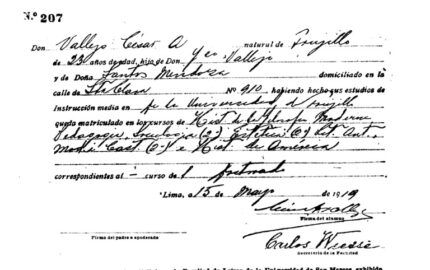 N.º 207
Don Vallejo César A natural de Trujillo
de 23 años de edad, hijo de Don Fco Vallejo
y de Doña Santos Mendoza domiciliado en la
calle de Sta Clara Nº 910 habiendo hecho sus estudios de
instrucción media en la Universidad de Trujillo
queda matriculado en los cursos de Hist de la Filosofía Moderna
Pedagogía, Sociología Estética Lit. Ant.
Cast e Hist de América
correspondientes al curso de
Lima, 15 de Mayo de 1919
Firma del alumno
Carlos Wiesse
Firma del padre o apoderado
Secretario de la Facultad